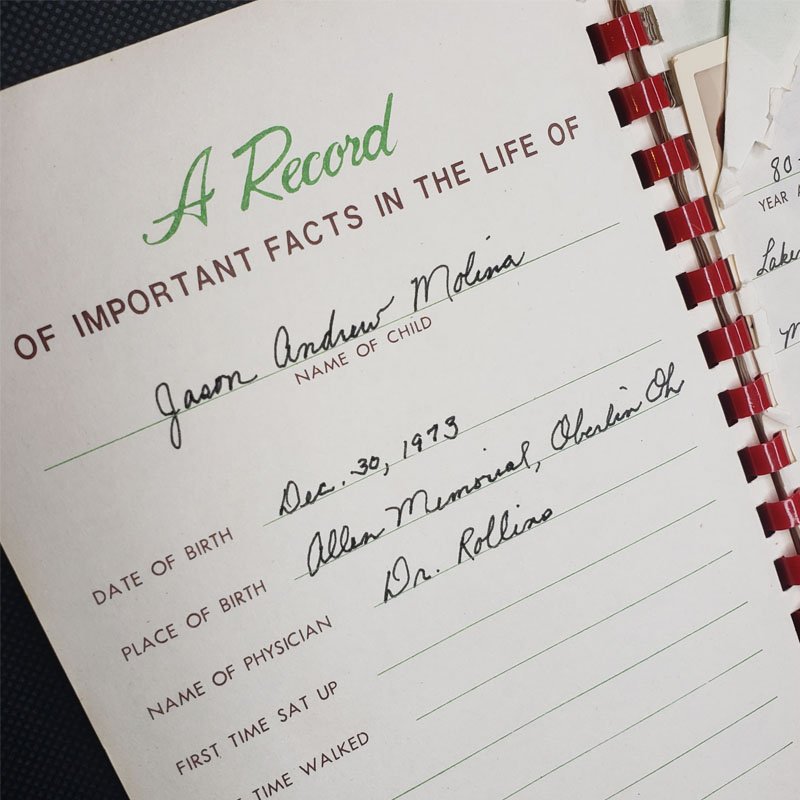 A Record
OF IMPORTANT FACTS IN THE LIFE OF
Jason Andrew Molina
NAME OF CHILD
DATE OF BIRTH Dec. 30, 1973
PLACE OF BIRTH Allen Memorial, Oberlin Oh
NAME OF PHYSICIAN Dr. Rollins
FIRST TIME SAT UP
TIME WALKED
80-
YEAR
Lake